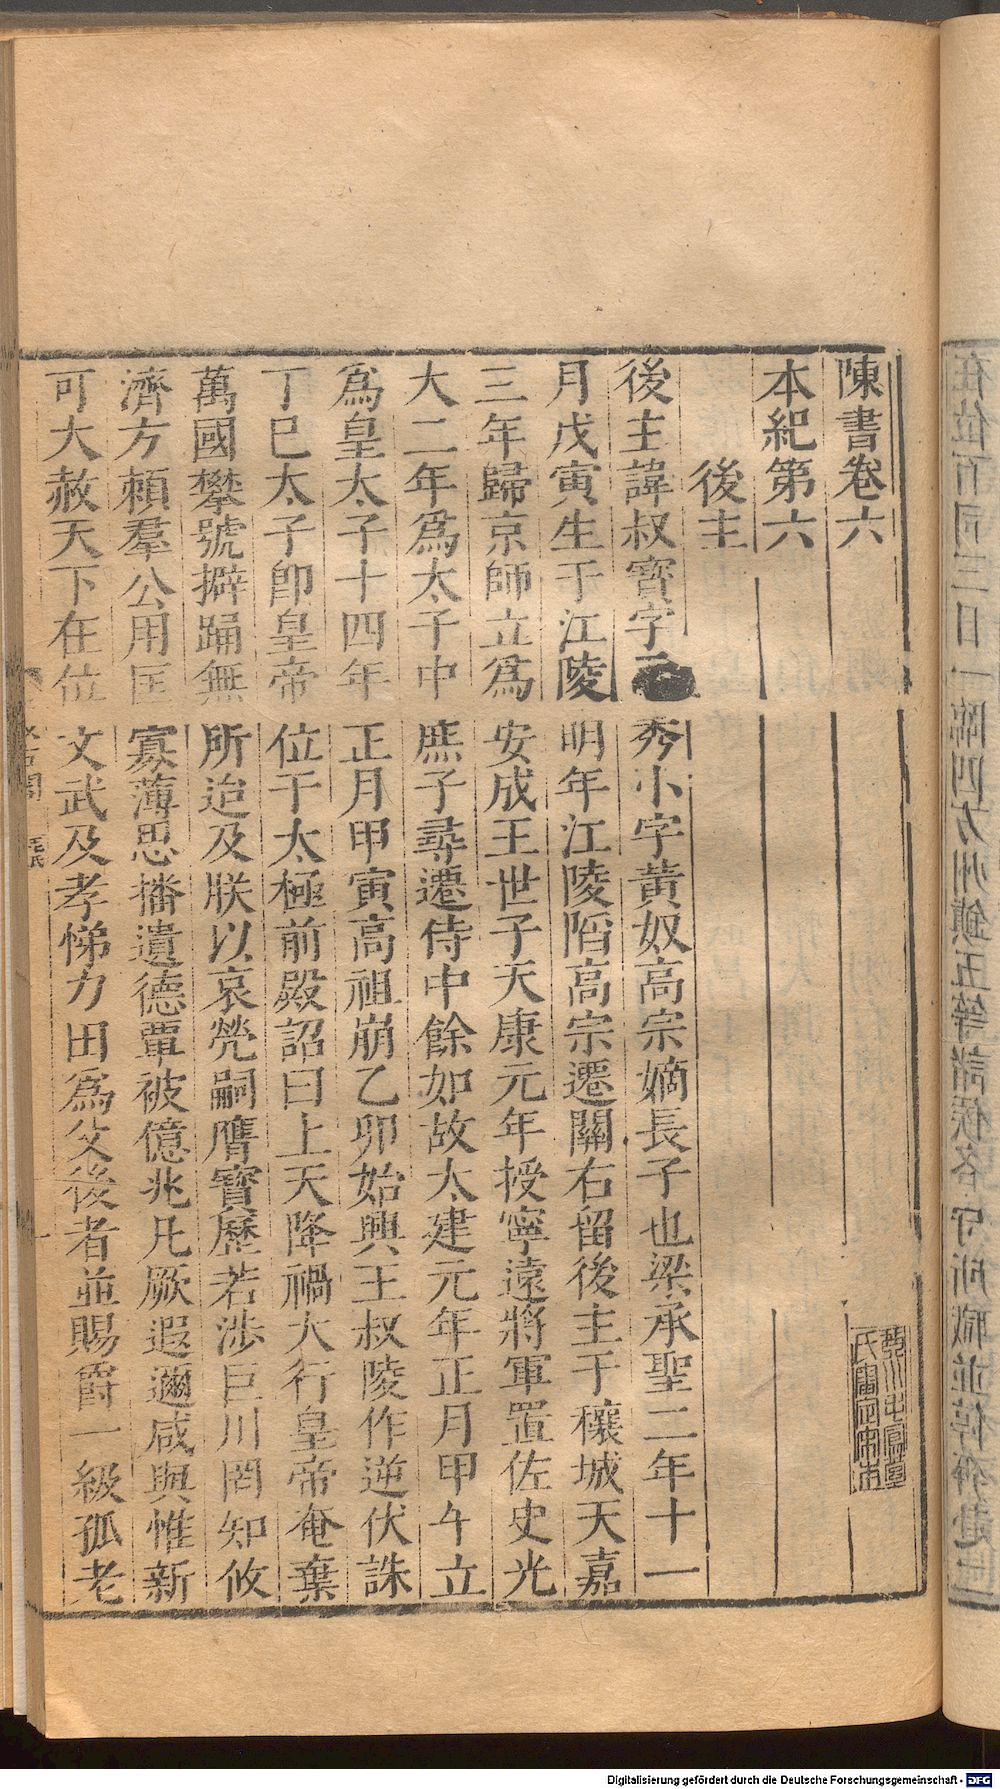 陳書卷六
本紀第六
後主
後主諱叔寳字元秀小字黃奴高宗嫡長子也梁承聖二年十一
月戊寅生于江陵明年江陵陷高宗遷關右留後主于穰城天嘉
三年歸京師立爲安成王世子天康元年授寧遠將軍置佐史光
大二年爲太子中庶子尋遷侍中餘如故太建元年正月甲午立
爲皇太子十四年正月甲寅高祖崩乙卯始興王叔陵作逆伏誅
丁巳太子卽皇帝位于太極前殿詔曰上天降禍大行皇帝奄棄
萬國攀號擗踊無所迨及朕以哀煢嗣膺寳歷若涉巨川罔知攸
濟方賴羣公用匡寡薄思播遺德覃被億兆凡厥遐邇咸與惟新
可大赦天下在位文武及孝悌力田爲父後者並賜爵一級孤老
毛氏
Digitalisierung gefördert durch die Deutsche Forschungsgemeinschaft - DFG